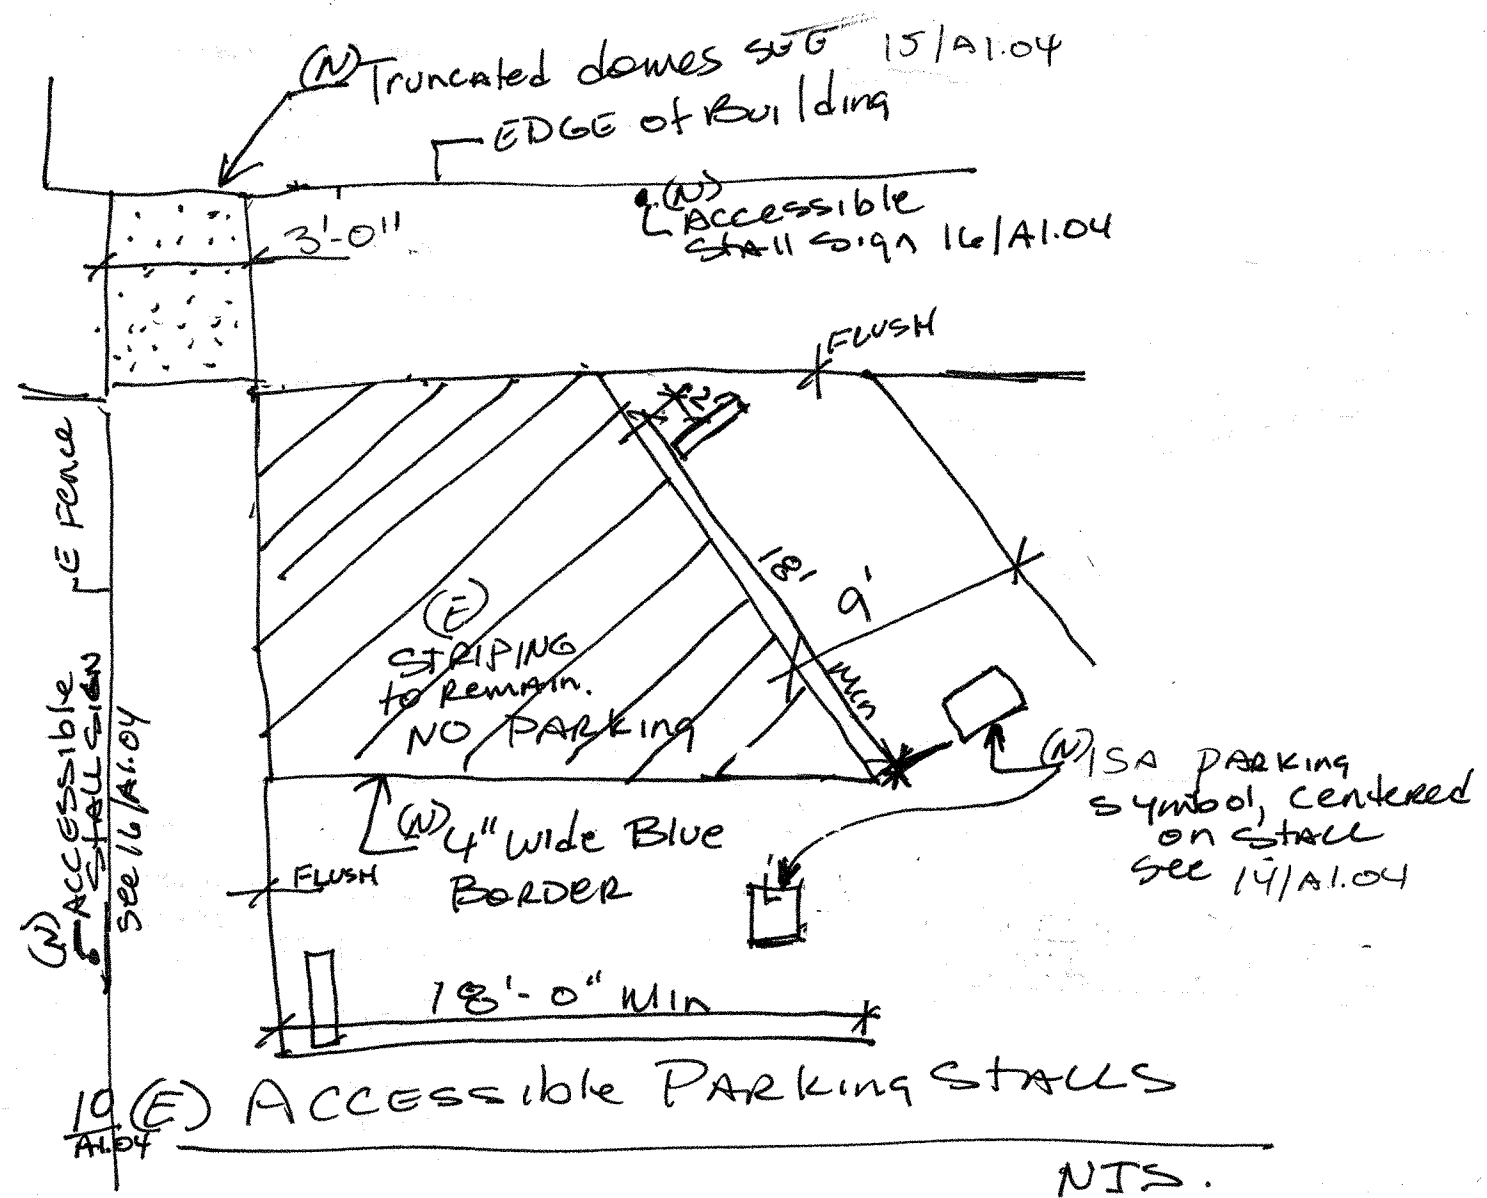 (N) Truncated domes SEE 15/A1.04
EDGE of Building
(N)
Accessible
Stall Sign 16/A1.04
3'-0"
FLUSH
2'
E Fence
18'
9'
Min
(E)
STRIPING
to Remain.
NO PARKING
(N) ISA PARKING
Symbol, centered
on STALL
See 14/A1.04
(N) 4" wide Blue
BORDER
FLUSH
(N)
ACCESSIBLE
STALL SIGN
See 16/A1.04
18'-0" Min
10 (E) Accessible Parking Stalls
A1.04
NTS.